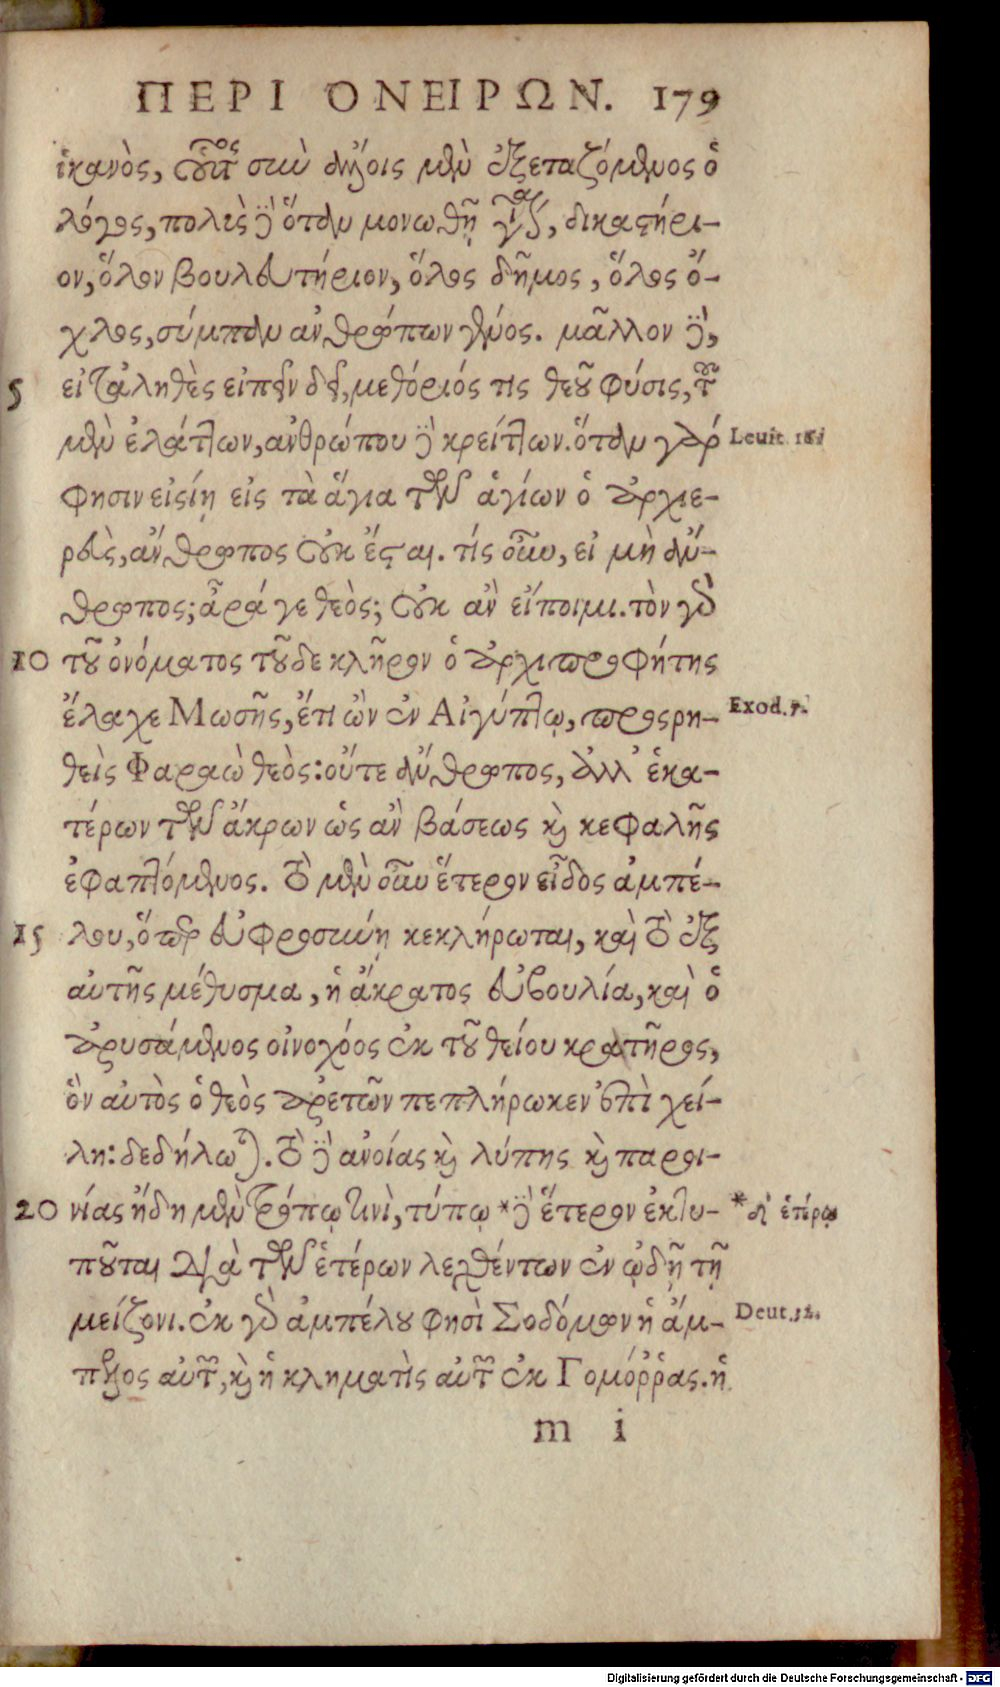 ΠΕΡΙ ΟΝΕΙΡΩΝ. 179
ἱκανὸς, οὗτος σὺν ἄλλοις μὲν ἐξεταζόμενος ὁ
λόγος, πολὺς δὲ ὅταν μονωθῇ γίνεται, δικαστήρι-
ον, ὅλον βουλευτήριον, ὅλος δῆμος, ὅλος ὄ-
χλος, σύμπαν ἀνθρώπων γένος. μᾶλλον δὲ,
5 εἰ τἀληθὲς εἰπεῖν δεῖ, μεθόριός τις θεοῦ φύσις, τοῦ
μὲν ἐλάττων, ἀνθρώπου δὲ κρείττων. ὅταν γὰρ
Leuit. 16.
φησιν εἰσίῃ εἰς τὰ ἅγια τῶν ἁγίων ὁ ἀρχιε-
ρεὺς, ἄνθρωπος οὐκ ἔσται. τίς οὖν, εἰ μὴ ἄν-
θρωπος; ἆρά γε θεός; οὐκ ἂν εἴποιμι. τὸν γὰρ
10 τοῦ ὀνόματος τοῦδε κλῆρον ὁ ἀρχιπροφήτης
ἔλαχε Μωσῆς, ἔτι ὢν ἐν Αἰγύπτῳ, προσρη-
Exod. 7.
θεὶς Φαραὼ θεὸς: οὔτε ἄνθρωπος, ἀλλ' ἑκα-
τέρων τῶν ἄκρων ὡς ἂν βάσεως καὶ κεφαλῆς
ἐφαπτόμενος. τὸ μὲν οὖν ἕτερον εἶδος ἀμπέ-
15 λου, ὅπερ εὐφροσύνη κεκλήρωται, καὶ τὸ ἐξ
αὐτῆς μέθυσμα, ἡ ἄκρατος εὐβουλία, καὶ ὁ
ἀρυσάμενος οἰνοχόος ἐκ τοῦ θείου κρατῆρος,
ὃν αὐτὸς ὁ θεὸς ἀρετῶν πεπλήρωκεν ἐπὶ χεί-
λη: δεδήλωται. τὸ δὲ ἀνοίας καὶ λύπης καὶ παροι-
20 νίας ἤδη μὲν τρόπῳ τινὶ, τύπῳ * δὲ ἕτερον ἐκτυ-
* δὴ ἑτέρῳ
ποῦται διὰ τῶν ἑτέρων λεχθέντων ἐν ᾠδῇ τῇ
μείζονι. ἐκ γὰρ ἀμπέλου φησὶ Σοδόμων ἡ ἄμ-
Deut. 32.
πελος αὐτῶν, καὶ ἡ κληματὶς αὐτῶν ἐκ Γομόῤῥας. ἡ
m i
Digitalisierung gefördert durch die Deutsche Forschungsgemeinschaft - DFG